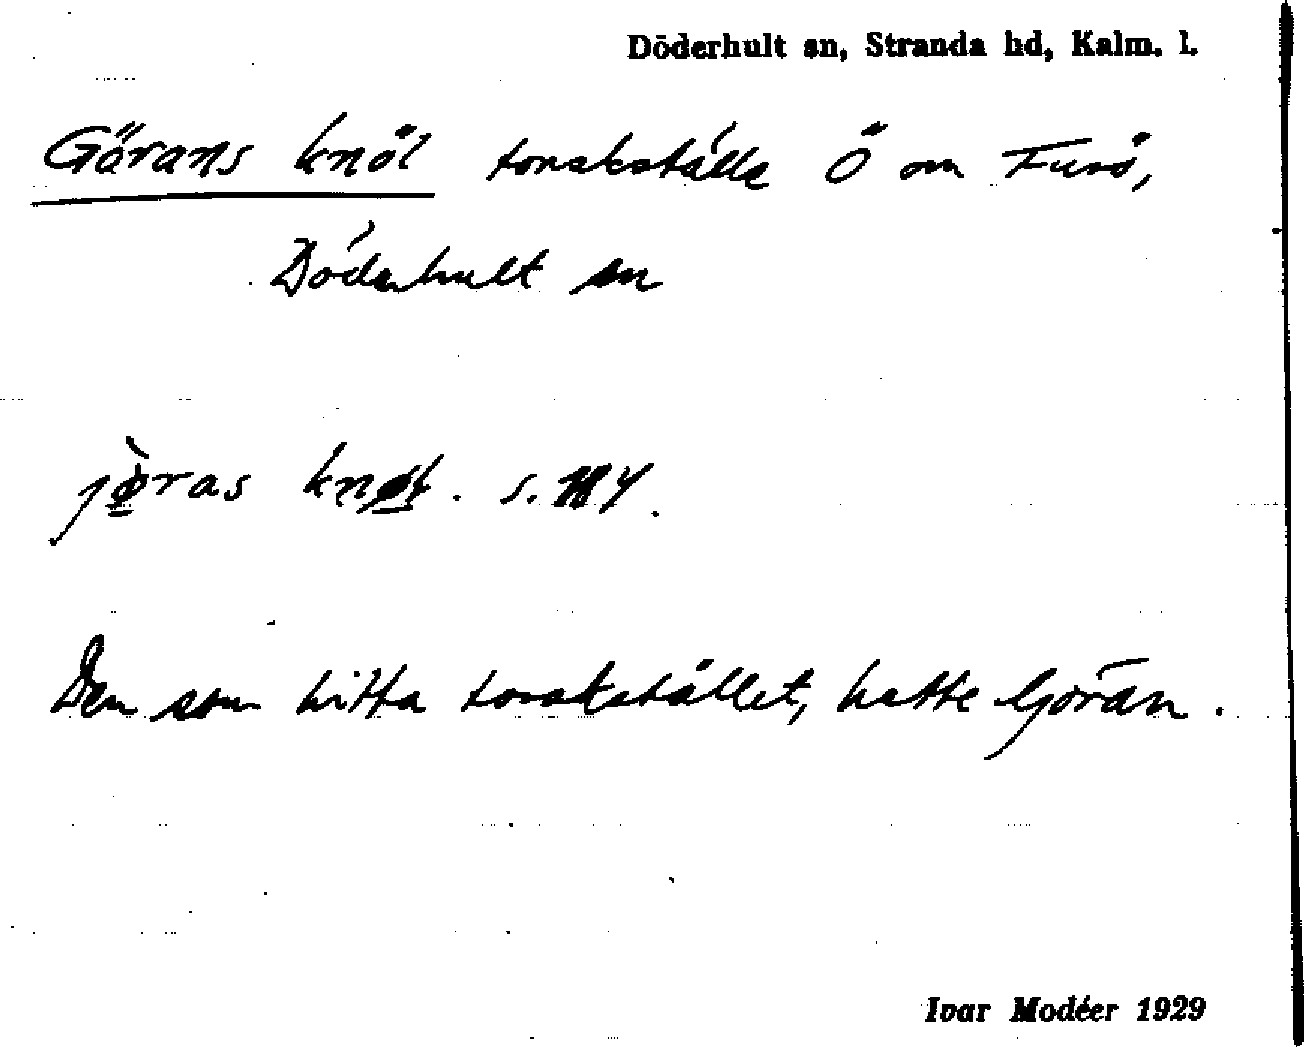 Döderhult sn, Stranda hd, Kalm. l.
Görans knöl torskställe Ö om Furö,
Döderhult sn
jø̀ras knøl. s.
Den som hitta torskstället, hette Göran.
Ivar Modéer 1929